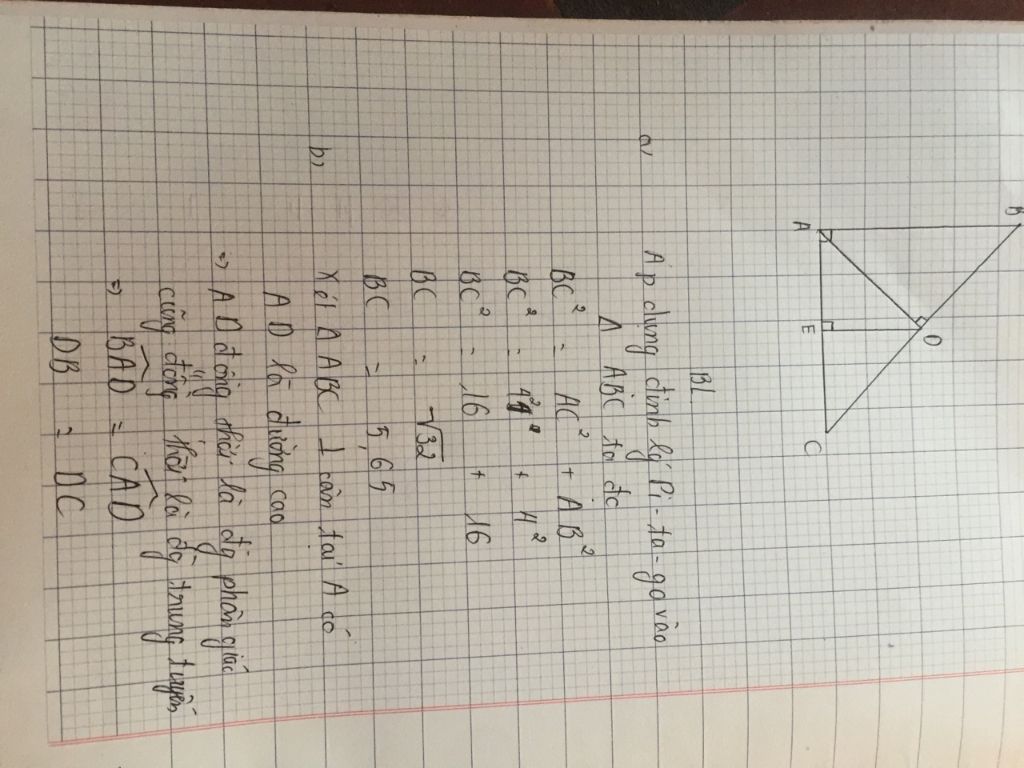 B
A
D
E
C
BL
a) Áp dụng định lý Pi-ta-go vào
Δ ABC ta đc
BC² = AC² + AB²
BC² = 4² + 4²
BC² = 16 + 16
BC = √32
BC = 5,65
b) Xét Δ ABC ⊥ cân tại A có
AD là đường cao
=> AD đồng thời là đg phân giác
cũng đồng thời là đg trung tuyến
=> BAD = CAD
DB = DC